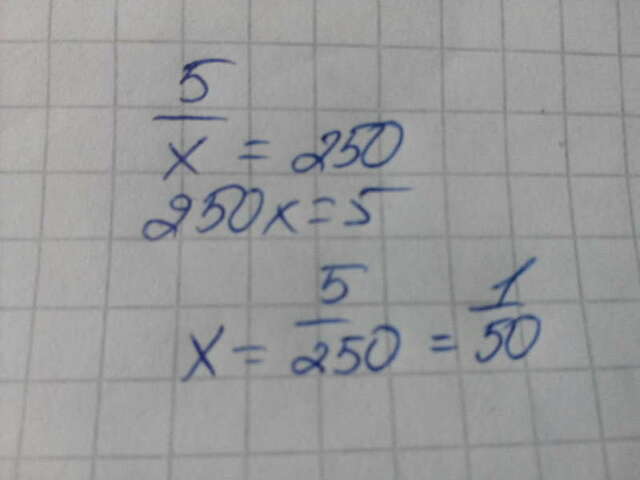 5/x = 250
250x = 5
x = 5/250 = 1/50